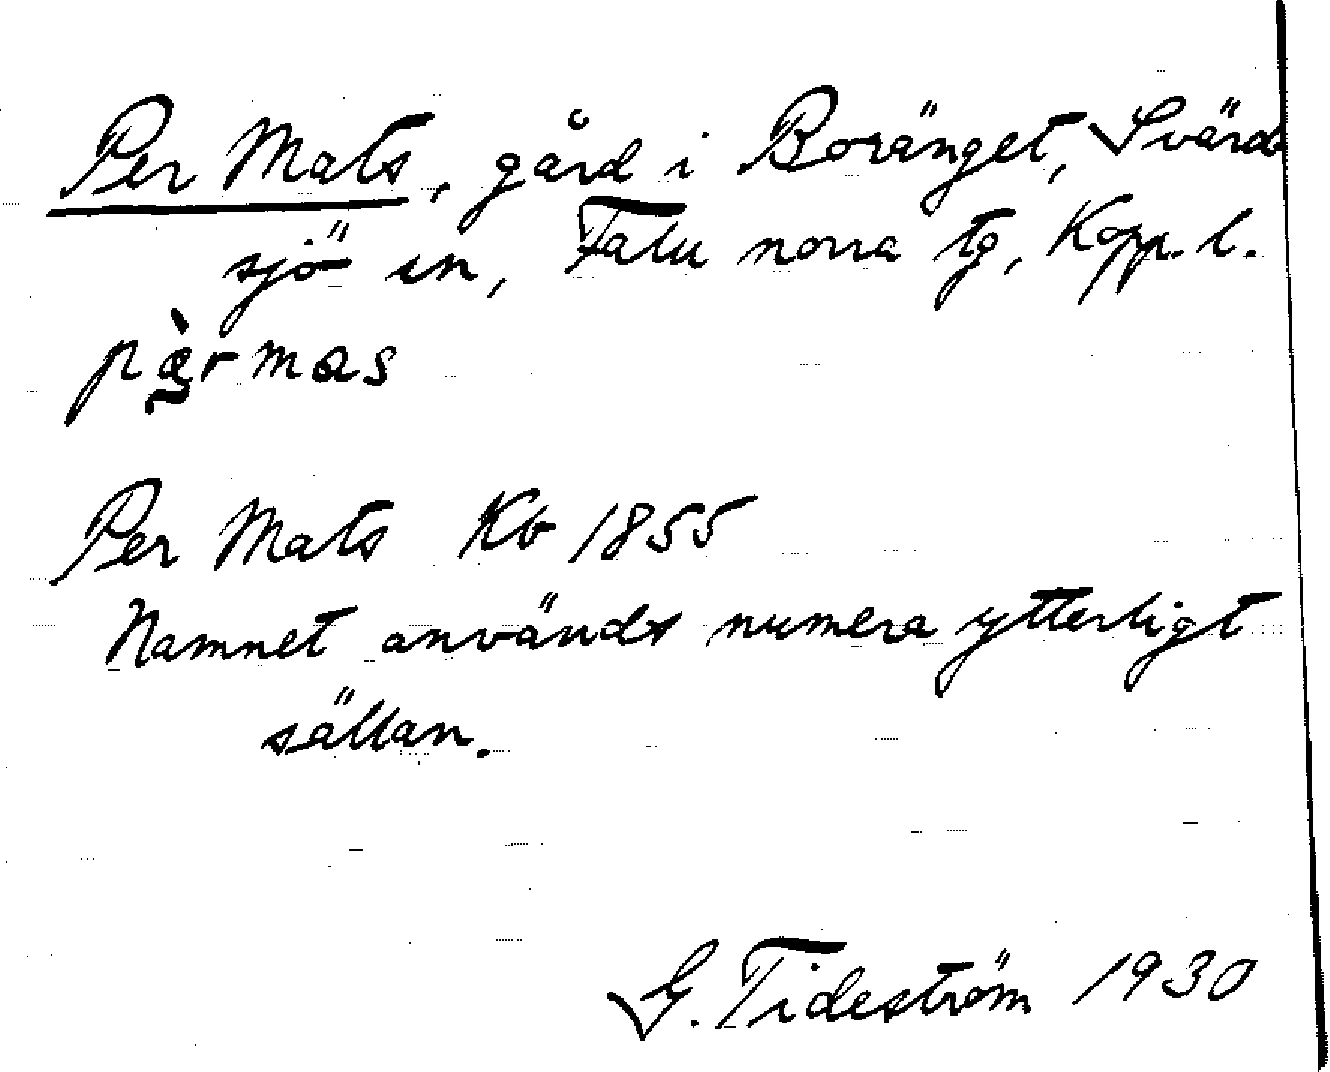 Per Mats, gård i Boränget, Svärd
sjö sn, Falu norra tg, Kopp. l.
pæ̀rmas
Per Mats Kb 1855
Namnet används numera ytterligt
sällan.
G. Tideström 1930